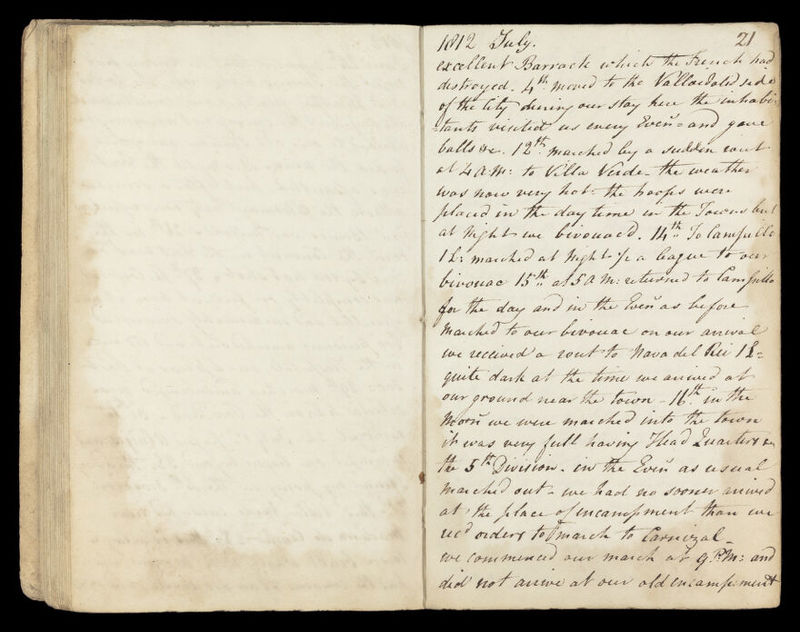 1812 July. 21
excellent Barrack which the French had
destroyed. 4th moved to the Valladolid side
of the City during our stay here the inhabi-
tants visited us every Even:g and gave
balls &c. 12th. marched by a sudden rout
at 4 A M: to Villa Verde - the weather
was now very hot - the troops were
placed in the day time in the Towns but
at Night we bivouac'd. 14th.. To Campillo
1 L: marched at Night ½ a league to our
bivouac 15th.. at 5 A M: returned to Campillo
for the day and in the Even:g as before
marched to our bivouac on our arrival
we received a rout to Nava del Rei 1 L=
quite dark at the time we arrived at
our ground near the town - 16th. in the
Morn:g we were marched into the town
it was very full having Head Quarters &
the 5th Division. in the Even:g as usual
marched out - we had no sooner arrived
at the place of incampment than we
rec'd orders to march to Carnizal -
we commenced our march at 9. P M: and
did not arrive at our old encampment